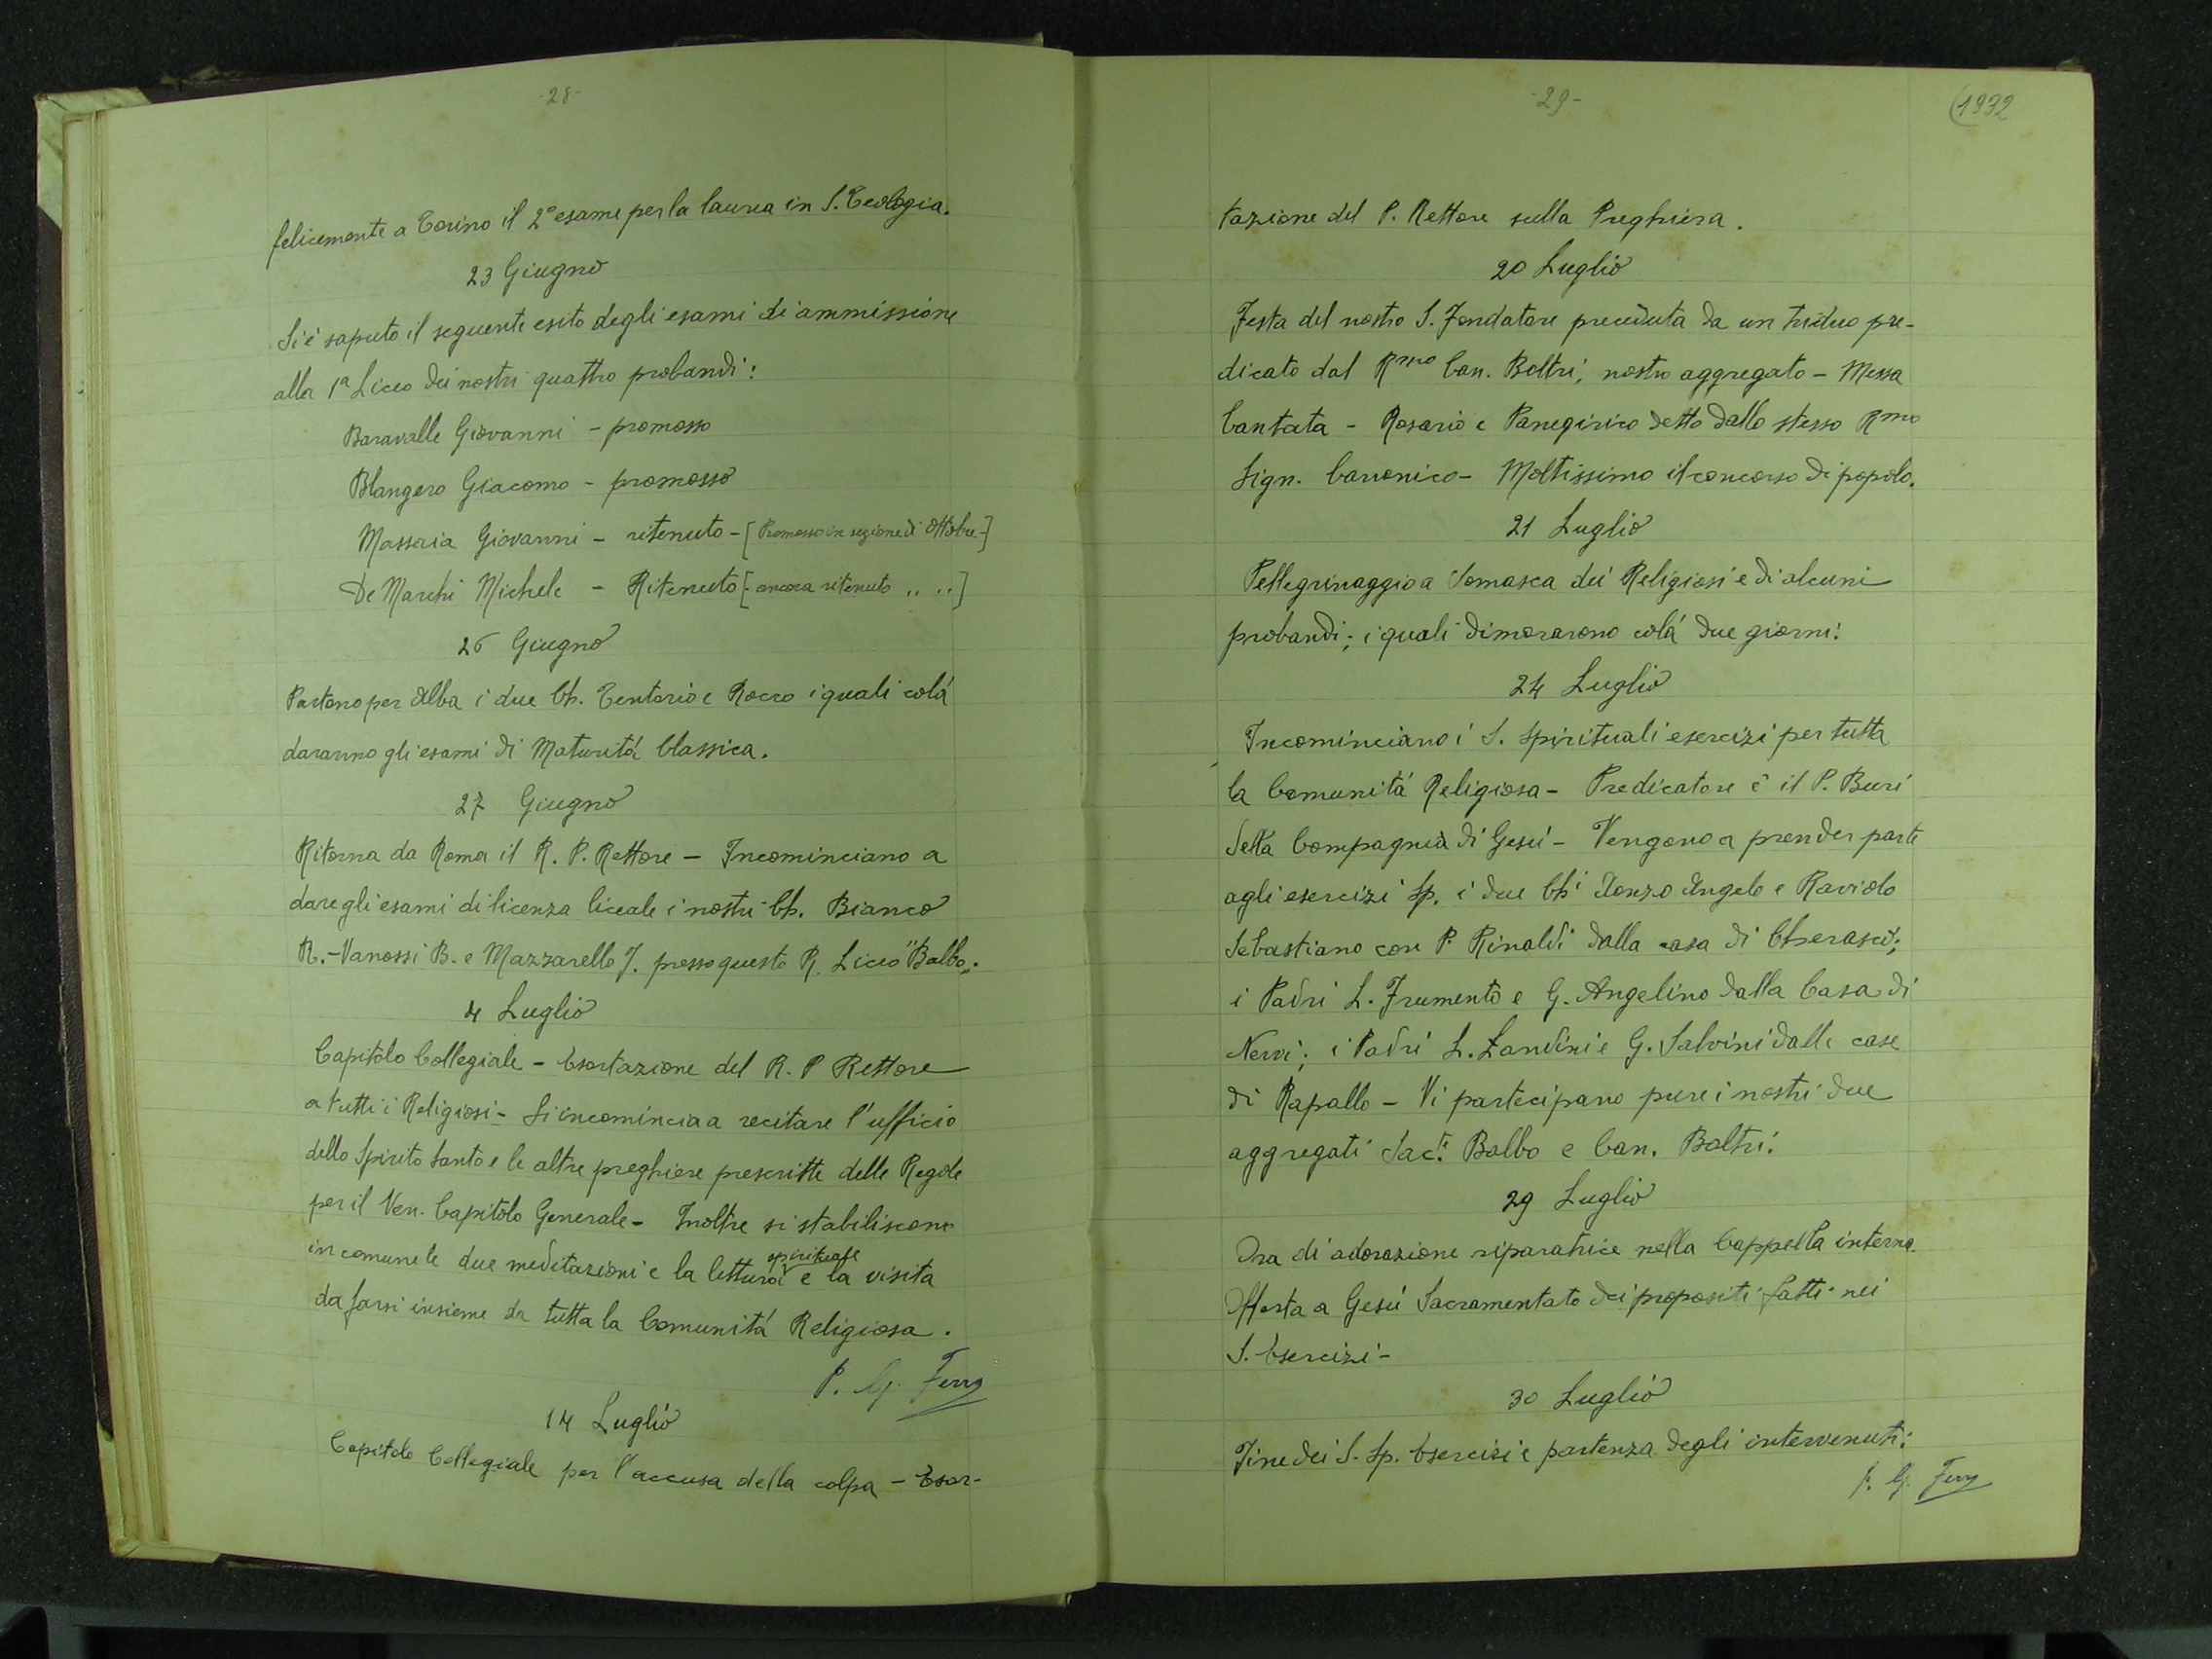 -28-
felicemente a Torino il 2° esame per la laurea in S. Teologia.
23 Giugno
Si è saputo il seguente esito degli esami di ammissione
alla 1ª Liceo dei nostri quattro probandi:
Baravalle Giovanni - promosso
Blangero Giacomo - promosso
Massaia Giovanni - ritenuto - [Promosso in sezione di Ottobre-]
De Marchi Michele - Ritenuto [-ancora ritenuto „ „]
26 Giugno
Partono per Alba i due Ch. Tentorio e Rocco i quali colá
daranno gli esami di Maturitá Classica.
27 Giugno
Ritorna da Roma il R. P. Rettore - Incominciano a
dare gli esami di licenza liceale i nostri Ch. Bianco
R. - Vanossi B. e Mazzarello J. presso questo R. Liceo "Balbo„.
4 Luglio
Capitolo Collegiale - Esortazione del R. P Rettore
a tutti i Religiosi - Si incomincia a recitare l'ufficio
dello Spirito Santo e le altre preghiere prescritte delle Regole
per il Ven. Capitolo Generale - Inoltre si stabiliscono
in comune le due meditazioni e la lettura spirituale e la visita
da farsi insieme da tutta la Comunitá Religiosa.
P. G. Ferro
14 Luglio
Capitolo Collegiale per l'accusa della colpa - Esor-
-29-
(1932
tazione del P. Rettore sulla Preghiera.
20 Luglio
Festa del nostro S. Fondatore preceduta da un triduo pre-
dicato dal Rmo Can. Boltri, nostro aggregato - Messa
Cantata - Rosario e Panegirico detto dallo stesso Rmo
Sign. Canonico - Moltissimo il concorso di popolo.
21 Luglio
Pellegrinaggio a Somasca dei Religiosi e di alcuni
probandi; i quali dimorarono colá due giorni.
24 Luglio
Incominciano i S. Spirituali esercizi per tutta
la Comunitá Religiosa - Predicatore è il P. Buri
della Compagnia di Gesú - Vengono a prender parte
agli esercizi Sp. i due Chi Angelo e Raviolo
Sebastiano con P. Rinaldi dalla casa di Cherasco;
i Padri L. Frumento e G. Angelino dalla Casa di
Nervi; i Padri L. Landini e G. Salvini dalle case
di Rapallo - Vi partecipano pure i nostri due
aggregati Sac.ti Balbo e Can. Boltri.
29 Luglio
Ora di adorazione riparatrice nella Cappella interna.
Offerta a Gesú Sacramentato dei propositi fatti nei
S. Esercizi -
30 Luglio
Fine dei S. Sp. Esercizi e partenza degli intervenuti.
P. G. Ferro